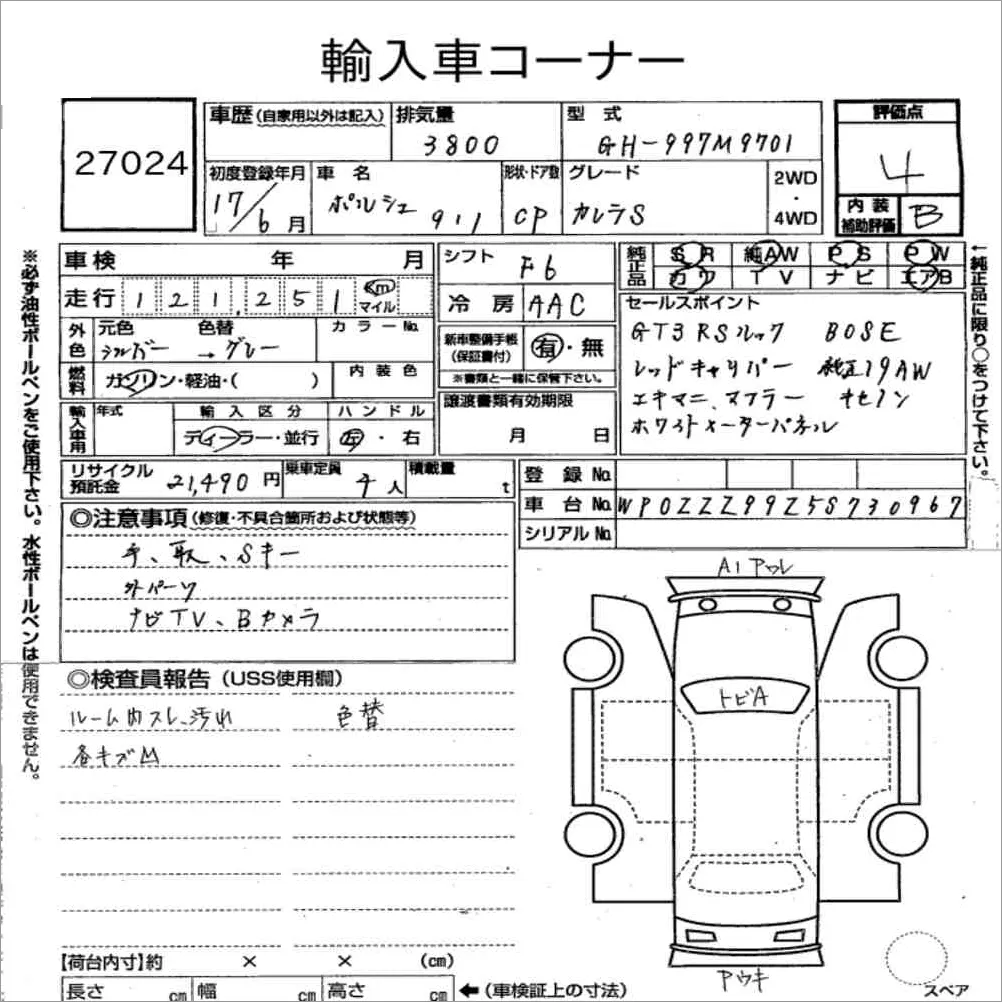 輸入車コーナー
27024
車歴(自家用以外は記入)
排気量
3800
型式
GH-997M9701
評価点
4
初度登録年月
17/6月
車名
ポルシェ 911
形状・ドア数
CP
グレード
カレラS
2WD
・
4WD
内装
補助評価
B
車検 年 月
走行 121,251 Km マイル
外色
元色
シルバー
色替
→グレー
カラーNo.
燃料
ガソリン・軽油・( )
内装色
輸入車用
年式
輸入区分
ディーラー・並行
ハンドル
左・右
シフト
F6
冷房
AAC
新車整備手帳
(保証書付)
有・無
※書類と一緒に保管下さい。
譲渡書類有効期限
月 日
純正品
SR 純AW PS PW
カワ TV ナビ エアB
セールスポイント
GT3RSルック BOSE
レッドキャリパー 純正19AW
エキマニ、マフラー キセノン
ホワイトメーターパネル
←純正品に限り○をつけて下さい。
※必ず油性ボールペンをご使用下さい。水性ボールペンは使用できません。
リサイクル
預託金
21,490円
乗車定員
4人
積載量
t
登録No.
車台No.
WP0ZZZ99Z5S730967
シリアルNo.
◎注意事項(修復・不具合箇所および状態等)
手、取、Sキー
外パーツ
ナビTV、Bカメラ
◎検査員報告(USS使用欄)
ルーム内スレ、汚れ
色替
各キズ凹
A1 アワレ
トビA
アウキ
スペア
【荷台内寸】約 × × (cm)
長さ cm 幅 cm 高さ cm ←(車検証上の寸法)